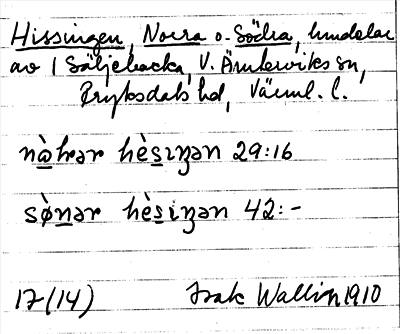 Hissingen, Norra o. Södra, hmdelar
av 1 Säljebacka, V. Ämterviks sn,
Fryksdals hd, Värml. l.
nò̱hrər hès̱iŋən 29:16
sø̀ṉər hès̱iŋən 42:-
17 (14) Isak Wallin 1910